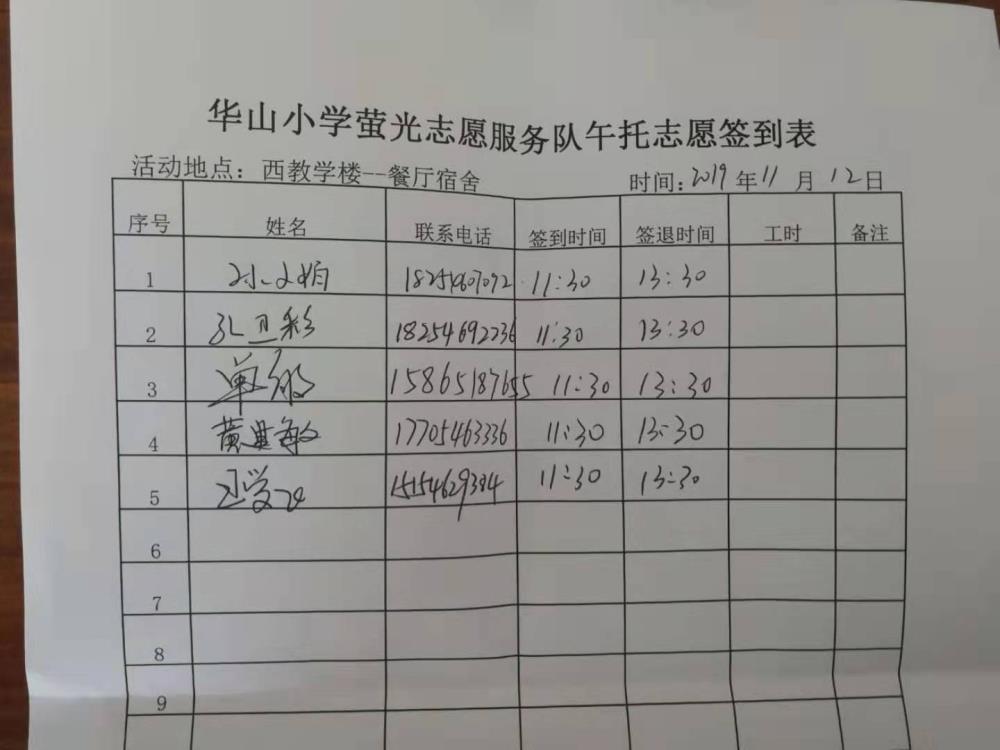 华山小学萤光志愿服务队午托志愿签到表
活动地点：西教学楼--餐厅宿舍 时间：2019 年 11 月 12 日
序号 姓名 联系电话 签到时间 签退时间 工时 备注
1 孙文娟 18254607092 11:30 13:30
2 孔卫彩 18254692236 11:30 13:30
3 单 15865187655 11:30 13:30
4 黄 敏 17705463336 11:30 13:30
5 11:30 13:30
6
7
8
9